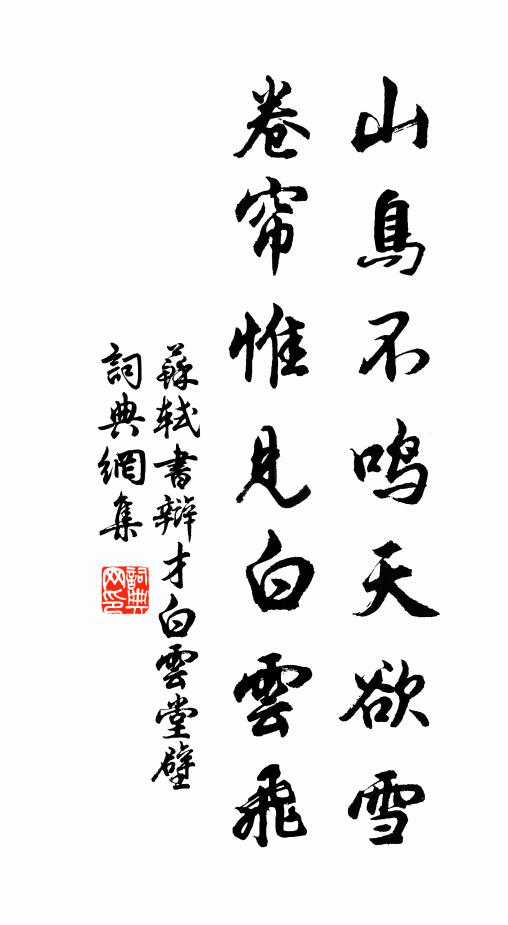 山鳥不鸣天欲雪
卷帘惟见白雲飛
蘇軾書辯才白雲堂壁
詞典網集
詞典网印